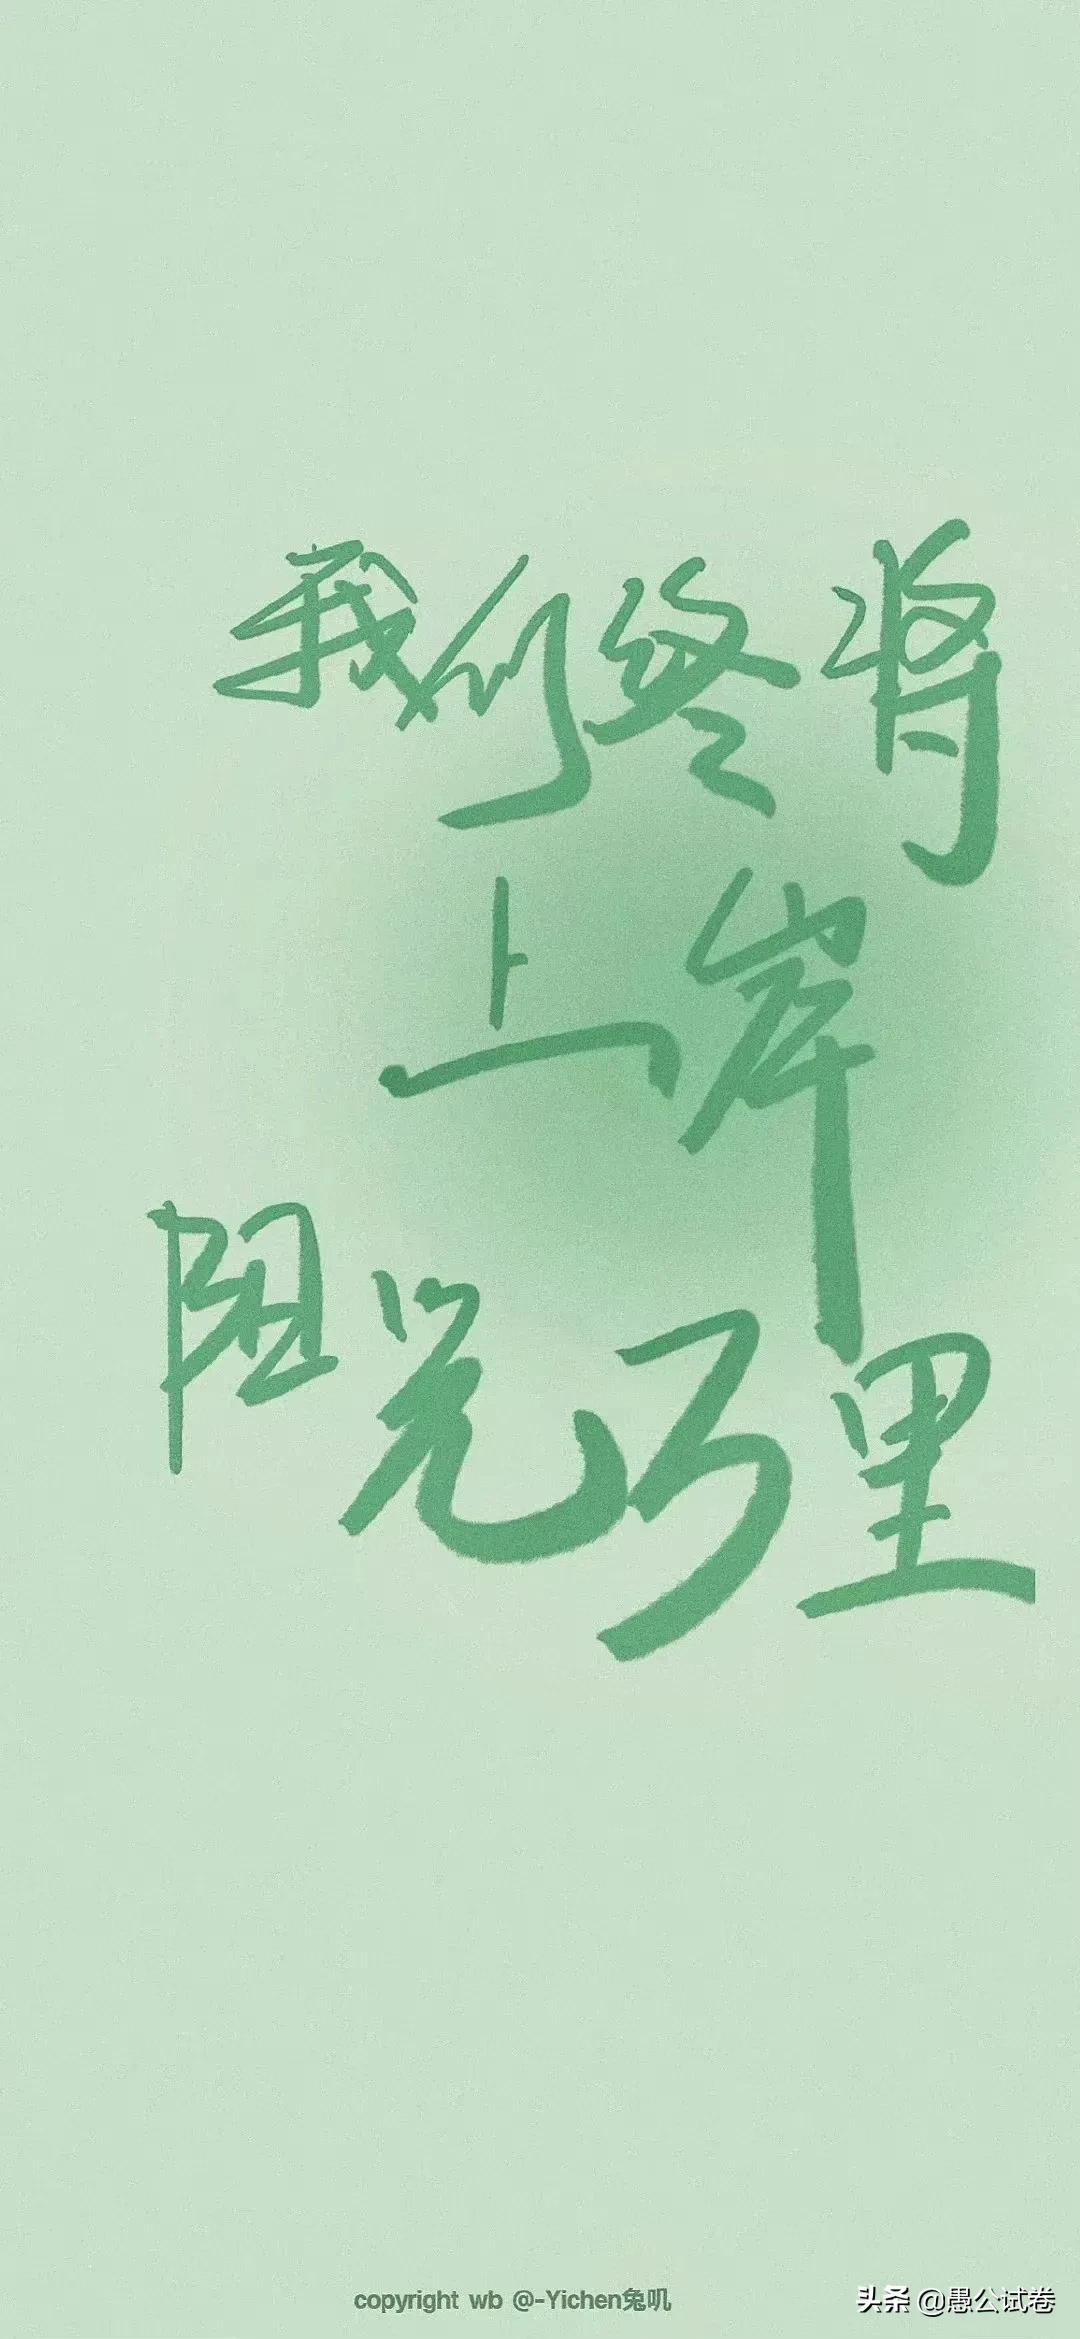 我们终将
上岸
阳光万里
copyright wb @-Yichen兔叽
头条 @愚公试卷